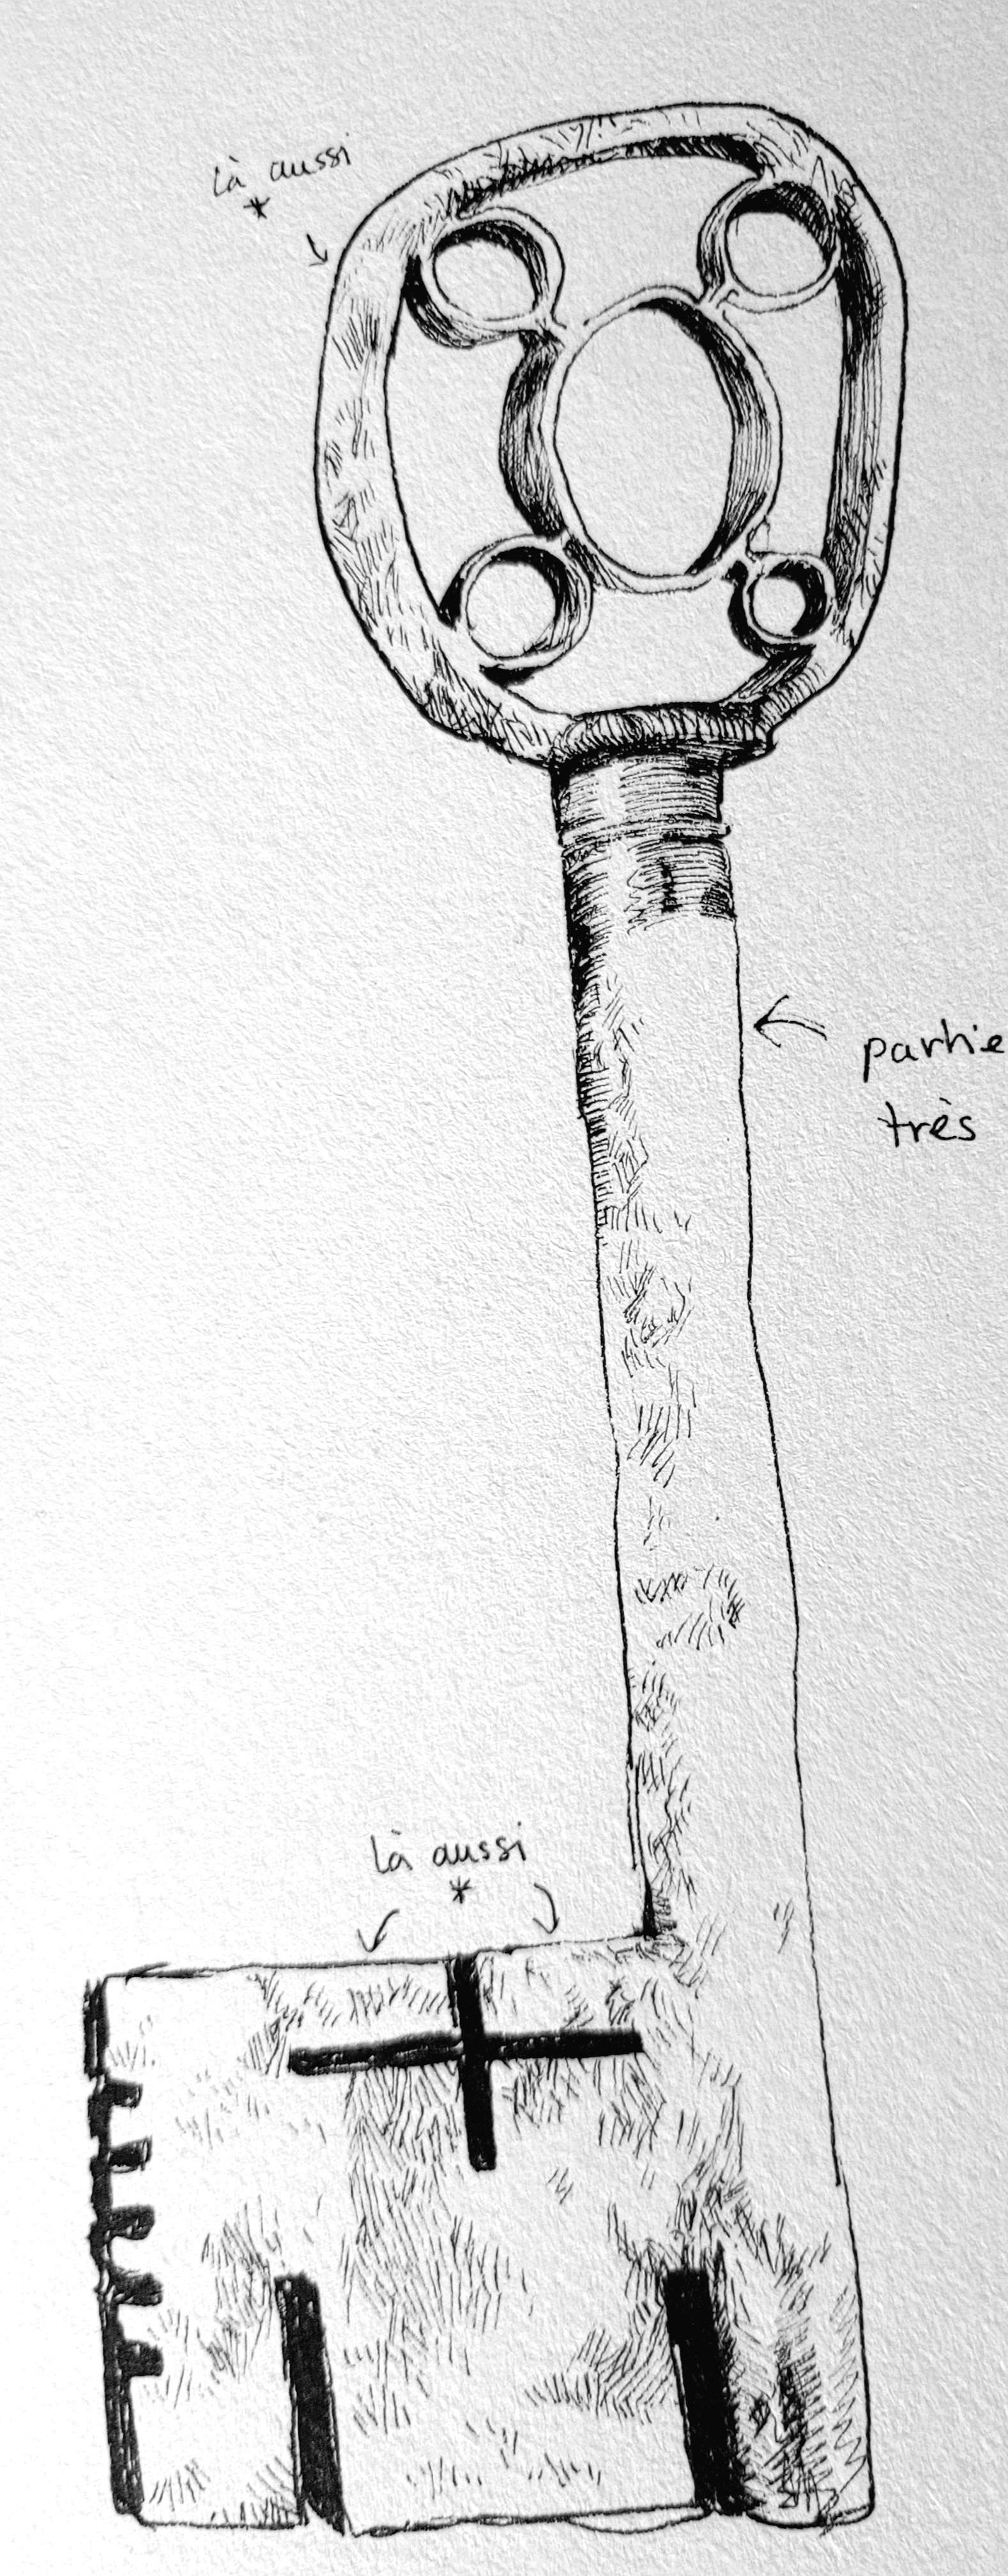 là aussi
*
partie
très
là aussi
*